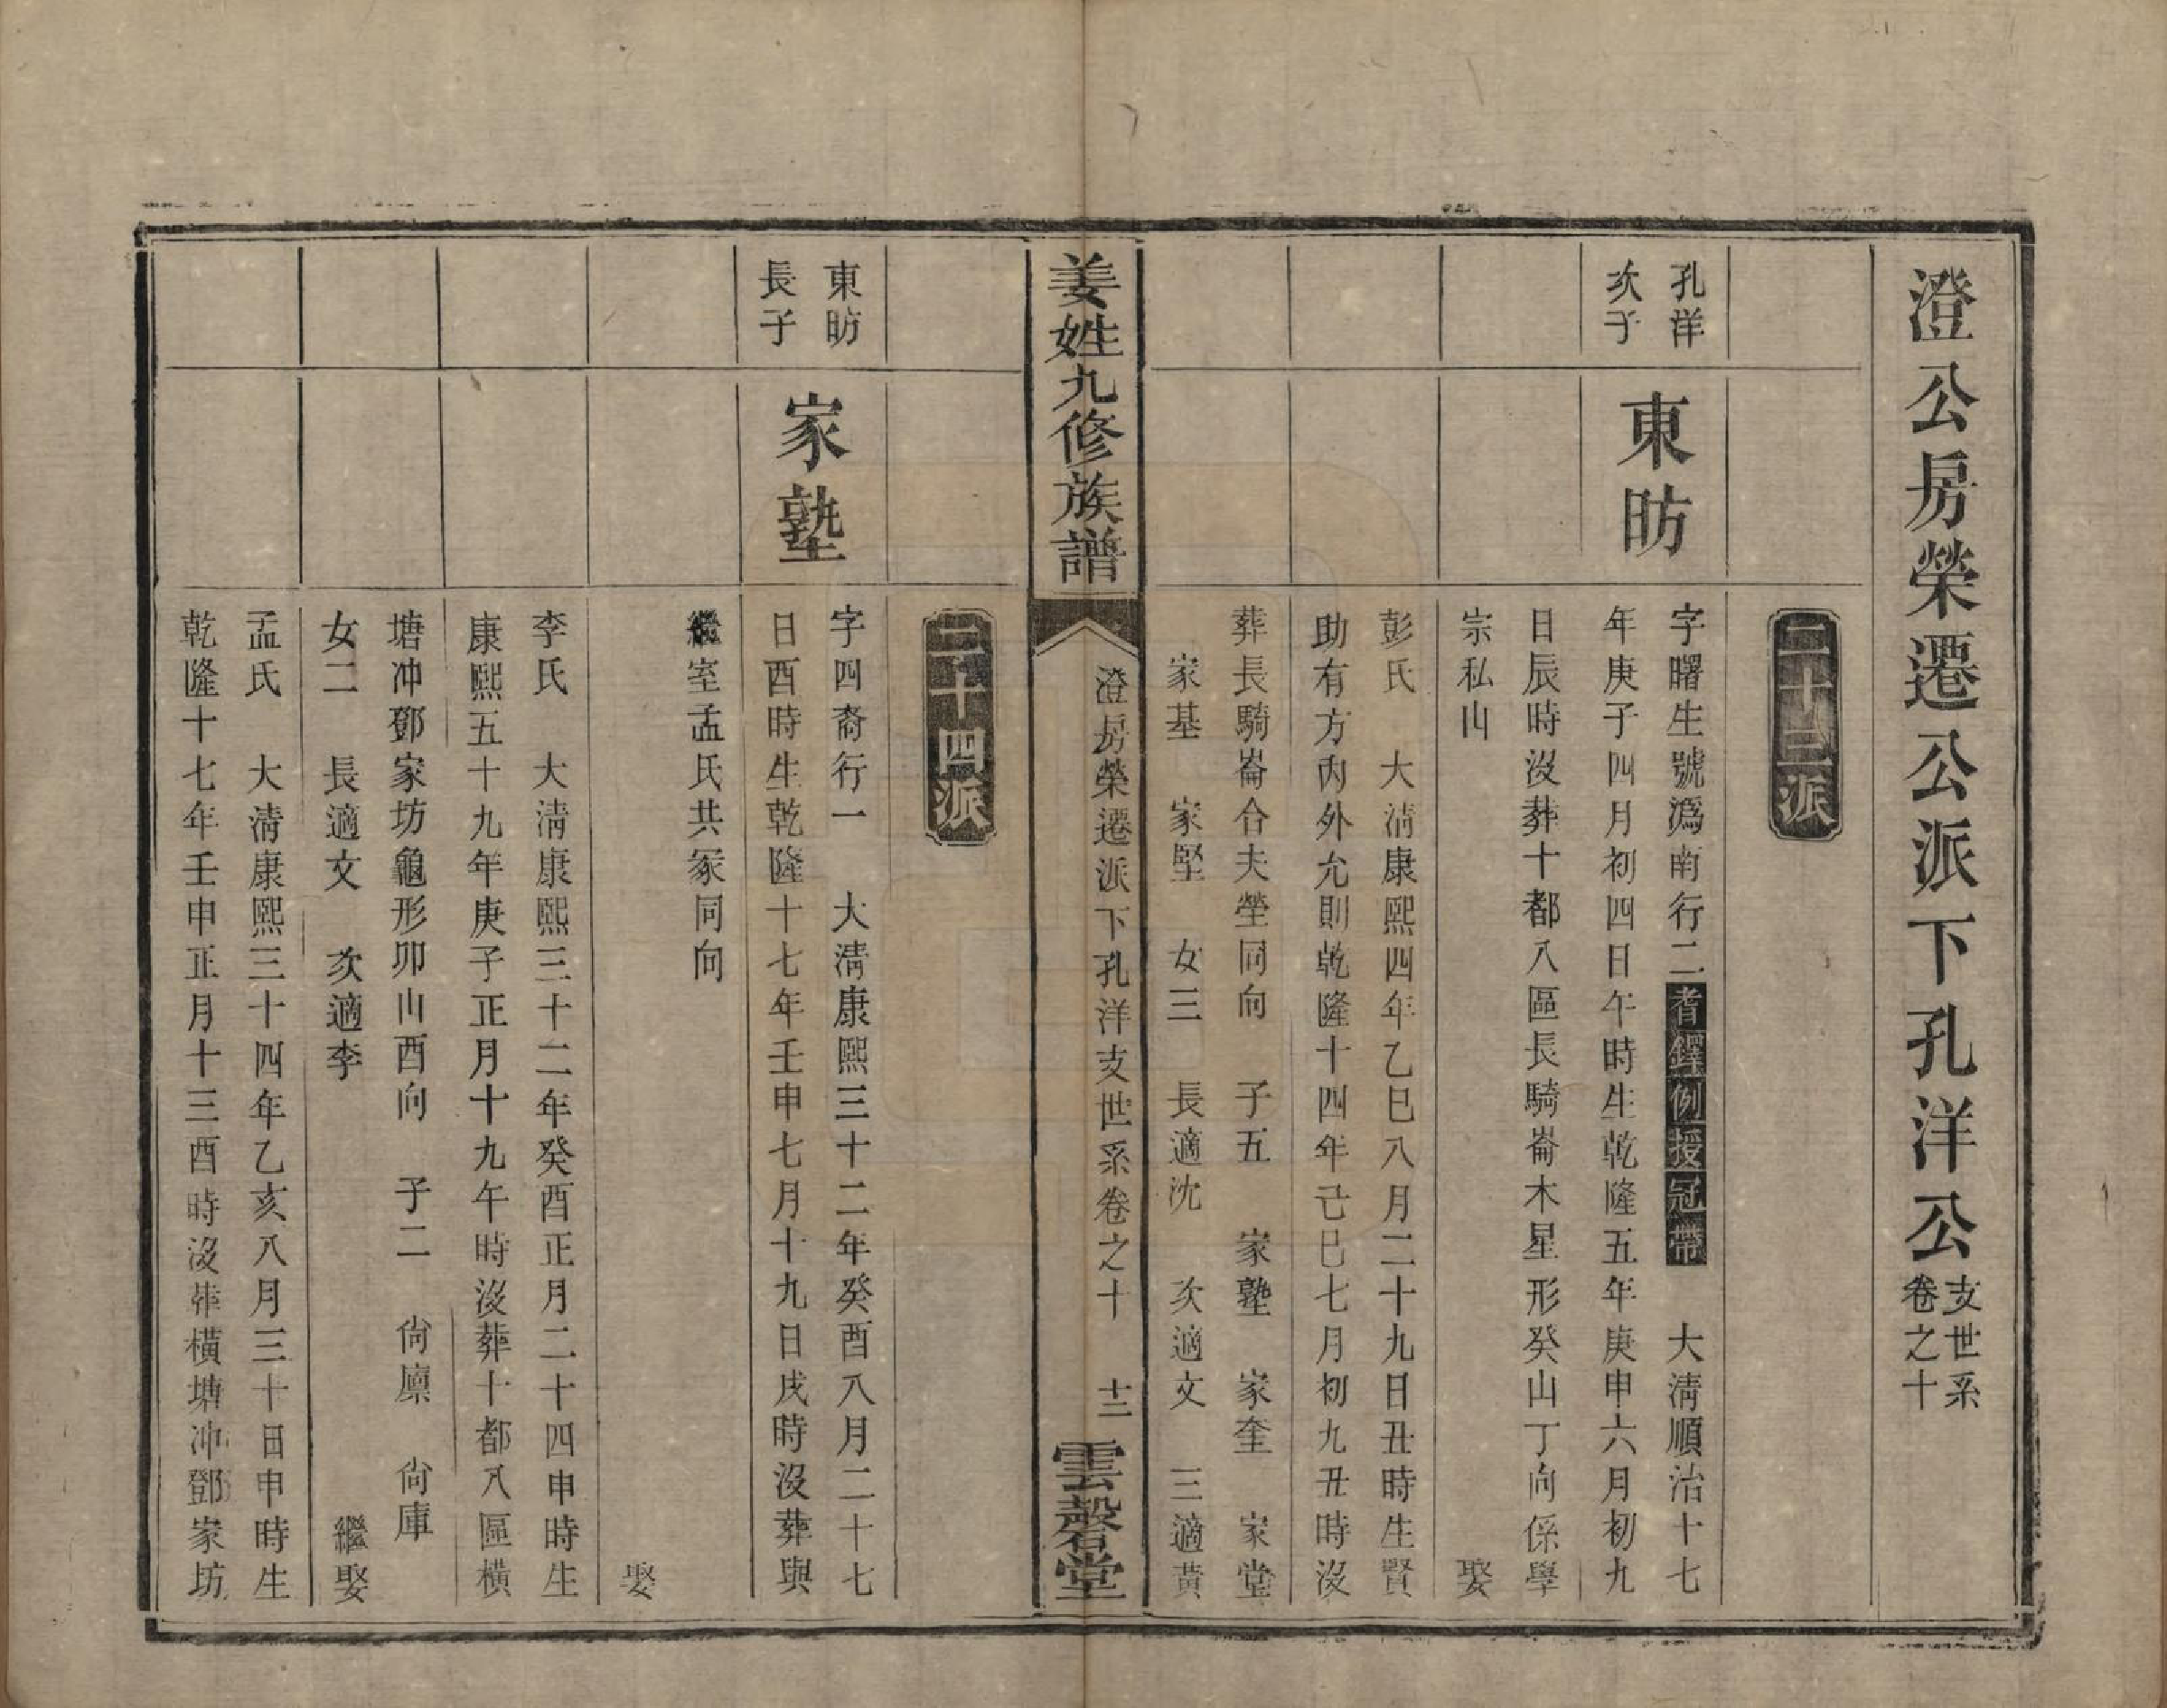 澄公房榮遷公派下孔洋公支世系卷之十
二十三派
孔洋次子
東昉
字曙生號溈南行二耆鐸例授冠帶 大清順治十七
年庚子四月初四日午時生乾隆五年庚申六月初九
日辰時沒葬十都八區長騎崙木星形癸山丁向係學
宗私山 娶
彭氏 大清康熙四年乙巳八月二十九日丑時生賢
助有方內外允則乾隆十四年己巳七月初九丑時沒
葬長騎崙合夫塋同向 子五 家塾 家奎 家堂
家基 家堅 女三 長適沈 次適文 三適黃
姜姓九修族譜
澄房榮遷派下孔洋支世系卷之十 十二
雲磬堂
二十四派
東昉長子
家塾
字四裔行一 大清康熙三十二年癸酉八月二十七
日酉時生乾隆十七年壬申七月十九日戌時沒葬與
繼室孟氏共冢同向
娶
李氏 大清康熙三十二年癸酉正月二十四申時生
康熙五十九年庚子正月十九午時沒葬十都八區橫
塘冲鄧家坊龜形卯山酉向 子二 尙廩 尙庫
女二 長適文 次適李 繼娶
孟氏 大清康熙三十四年乙亥八月三十日申時生
乾隆十七年壬申正月十三酉時沒葬橫塘冲鄧家坊